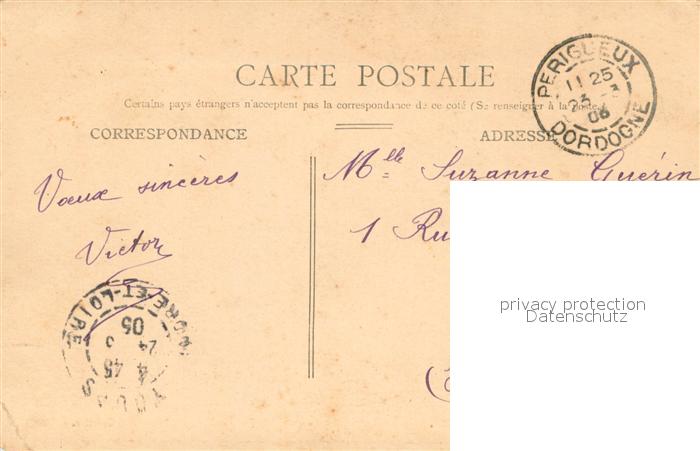 CARTE POSTALE
Certains pays étrangers n'acceptent pas la correspondance de ce coté (Se renseigner à la poste)
CORRESPONDANCE
ADRESSE
PERIGUEUX
11 25
23 3
06
DORDOGNE
Vœux sincères
Victor
Mlle Suzanne Guérin
1 Ru
INDRE-ET-LOIRE
TOURS
4 45
24 3
privacy protection
Datenschutz